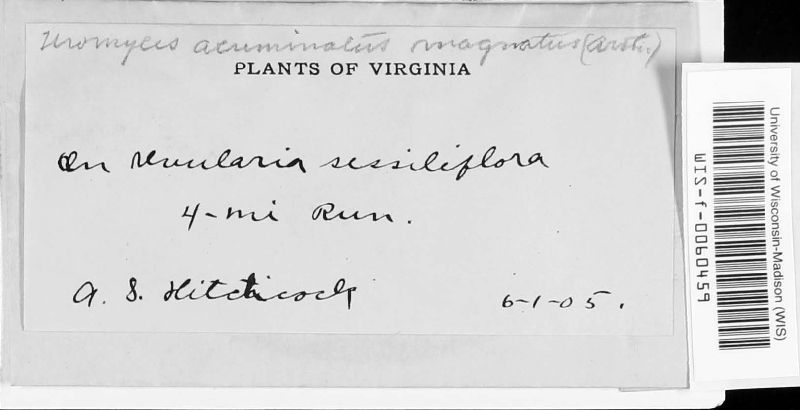 Uromyces acuminatus magnatus (Arth.)
PLANTS OF VIRGINIA
On Uvularia sessiliflora
4-mi Run.
A. S. Hitchcock
6-1-05.
University of Wisconsin-Madison (WIS)
WIS-f-0060459